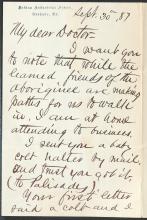 Indian Industrial School,
Carlisle, Pa.
Sept. 30" 87
My dear Doctor
I want you
to note that while the
learned friends of the
aborigines are making
paths for us to walk
in, I am at home
attending to business.
I sent you a baby
colt halter by mail
and trust you got it,
(to Palisade)
Your first letter
said a colt and I